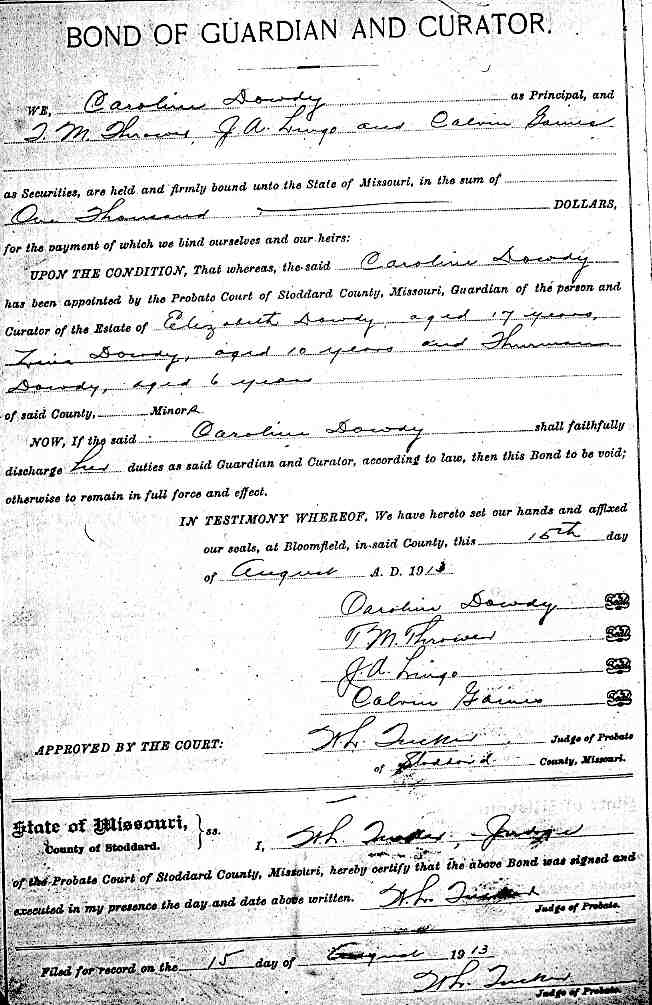 BOND OF GUARDIAN AND CURATOR.
WE, Caroline Dowdy as Principal, and
T. M. Thrower, J A. Lingo and Calvin Gaines
as Securities, are held and firmly bound unto the State of Missouri, in the sum of
One Thousand DOLLARS,
for the payment of which we bind ourselves and our heirs:
UPON THE CONDITION, That whereas, the said Caroline Dowdy
has been appointed by the Probate Court of Stoddard County, Missouri, Guardian of the person and
Curator of the Estate of Elizabeth Dowdy, aged 17 years,
Dowdy, aged 10 years and Thurman
Dowdy, aged 6 years
of said County, Minors
NOW, If the said Caroline Dowdy shall faithfully
discharge her duties as said Guardian and Curator, according to law, then this Bond to be void;
otherwise to remain in full force and effect.
IN TESTIMONY WHEREOF, We have hereto set our hands and affixed
our seals, at Bloomfield, in said County, this 15th day
of August A. D. 1913
Caroline Dowdy Seal
T M. Thrower Seal
J. A. Lingo Seal
Calvin Gaines Seal
APPROVED BY THE COURT: W L. Tucker Judge of Probate
of Stoddard County, Missouri.
State of Missouri, } ss.
County of Stoddard. I, W L Tucker, Judge
of the Probate Court of Stoddard County, Missouri, hereby certify that the above Bond was signed and
executed in my presence the day and date above written. W. L. Tucker
Judge of Probate.
Filed for record on the 15 day of August 1913
W L. Tucker
Judge of Probate.